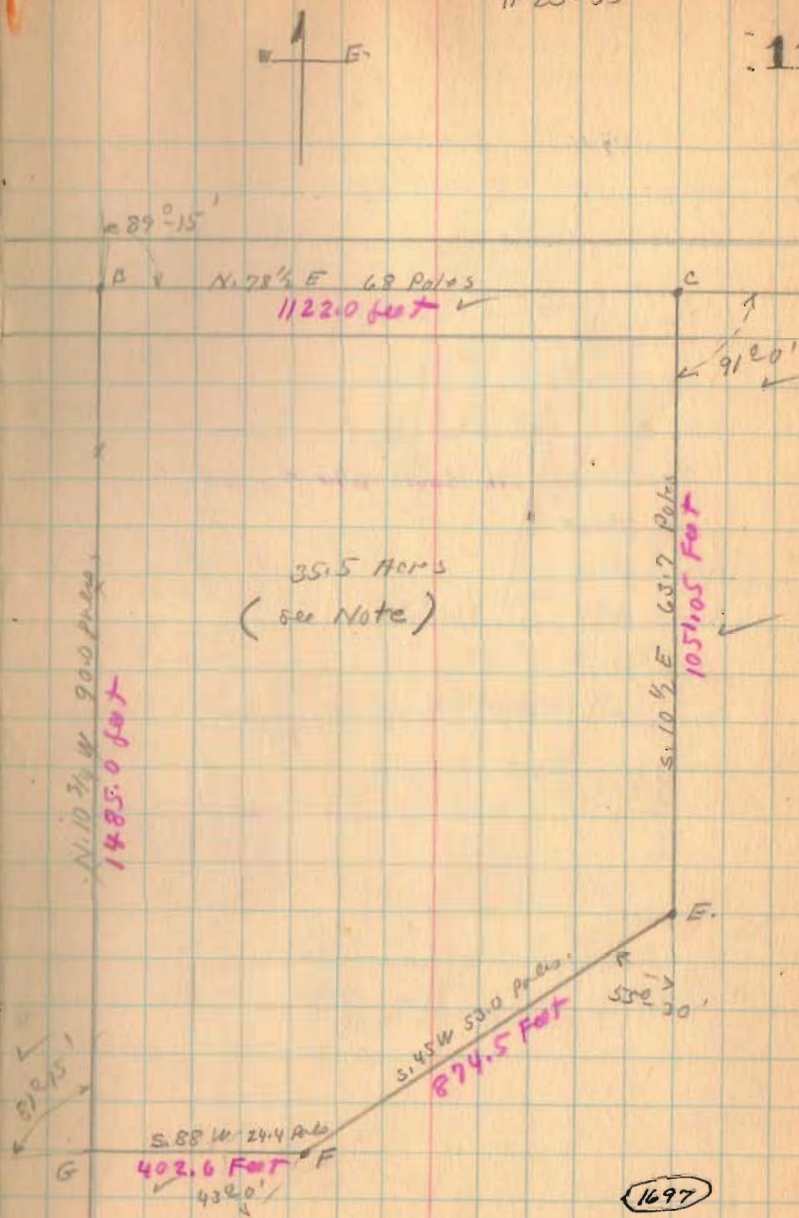 W E
89°-15'
B N. 78½ E 68 Poles C
1122.0 feet
91°0'
S. 10½ E 63.7 Poles
1051.05 Feet
35.5 Acres
(see Note)
N. 10¾ W 90.0 Poles
1485.0 feet
E.
55° 30'
S. 45 W 53.0 Poles.
874.5 Feet
81°15'
S. 88 W 24.4 Poles
G 402.6 Feet F
43°0'
1697